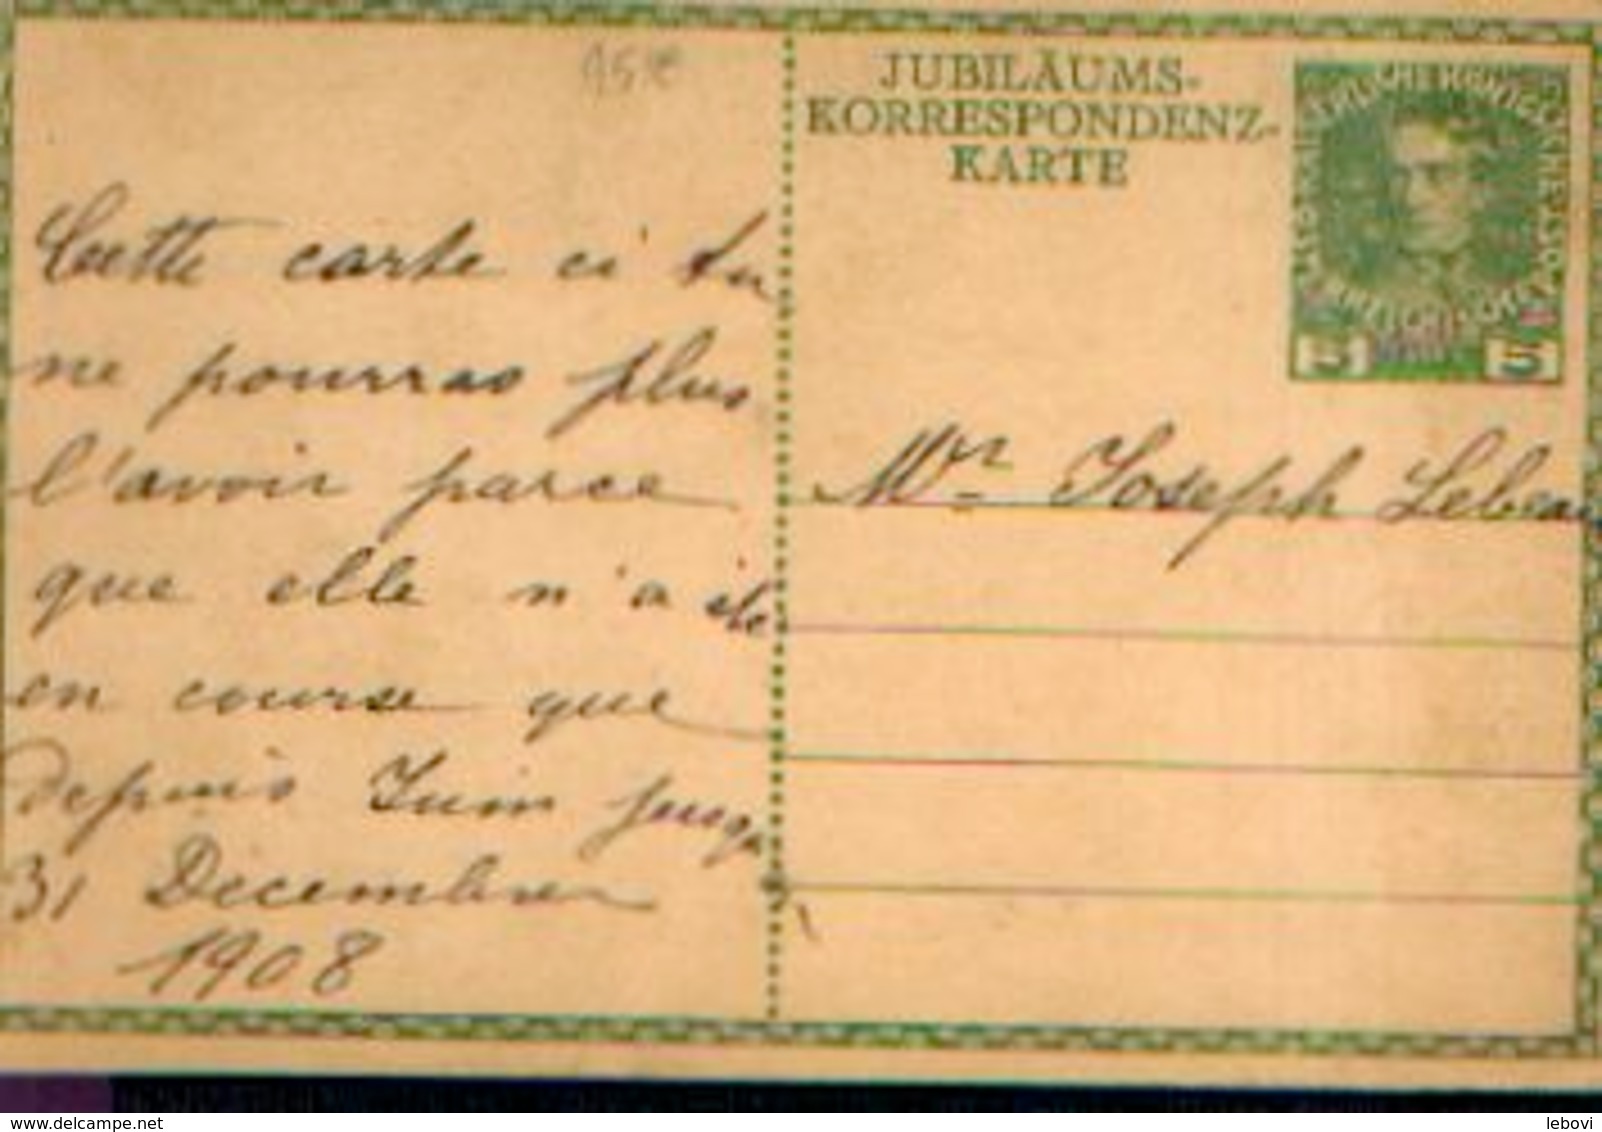 15.-€
JUBILÄUMS-
KORRESPONDENZ-
KARTE
5 5
Cette carte ci tu
ne pourras plus
l'avoir parce
que elle n'a été
en course que
depuis Juin jusqu'
31 Décembre
1908
Mr. Joseph Lebeau
www.delcampe.net
lebovi